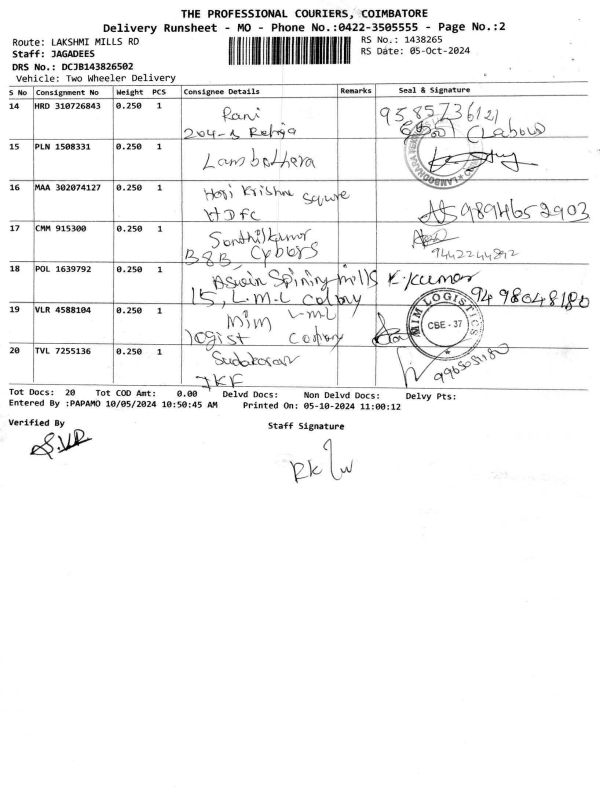 THE PROFESSIONAL COURIERS, COIMBATORE
Delivery Runsheet - MO - Phone No.:0422-3505555 - Page No.:2
Route: LAKSHMI MILLS RD
RS No.: 1438265
Staff: JAGADEES
RS Date: 05-Oct-2024
DRS No.: DCJB143826502
Vehicle: Two Wheeler Delivery
S No Consignment No Weight PCS Consignee Details Remarks Seal & Signature
14 HRD 310726843 0.250 1 Rani
204-
15 PLN 1508331 0.250 1 Lambothara
16 MAA 302074127 0.250 1 Hari Krishna Squre
HDFC
9894652903
17 CMM 915300 0.250 1 Senthilkumar
B&B
9442244892
18 POL 1639792 0.250 1 Aswin Spining mills K.Kumar
15, L.M.L colony
9498048180
19 VLR 4588104 0.250 1 Mim LML
logist colony
MIM LOGISTICS
CBE - 37
20 TVL 7255136 0.250 1 Sudakaran
JKF
Tot Docs: 20 Tot COD Amt: 0.00 Delvd Docs: Non Delvd Docs: Delvy Pts:
Entered By :PAPAMO 10/05/2024 10:50:45 AM Printed On: 05-10-2024 11:00:12
Verified By
Staff Signature